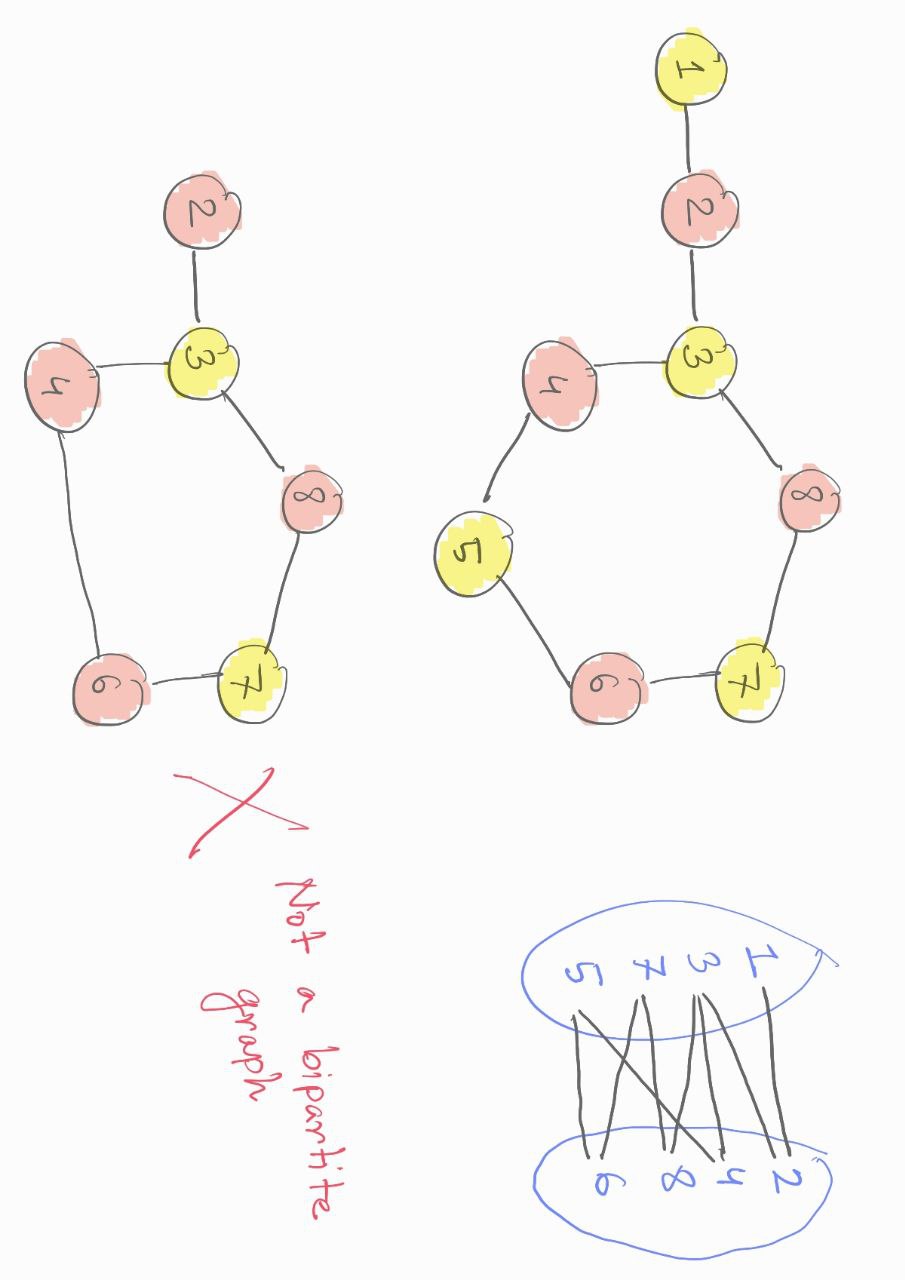 8
7
1
2
3
6
4
5
1
3
7
5
2
4
8
6
8
7
2
3
6
4
Not a bipartite
graph